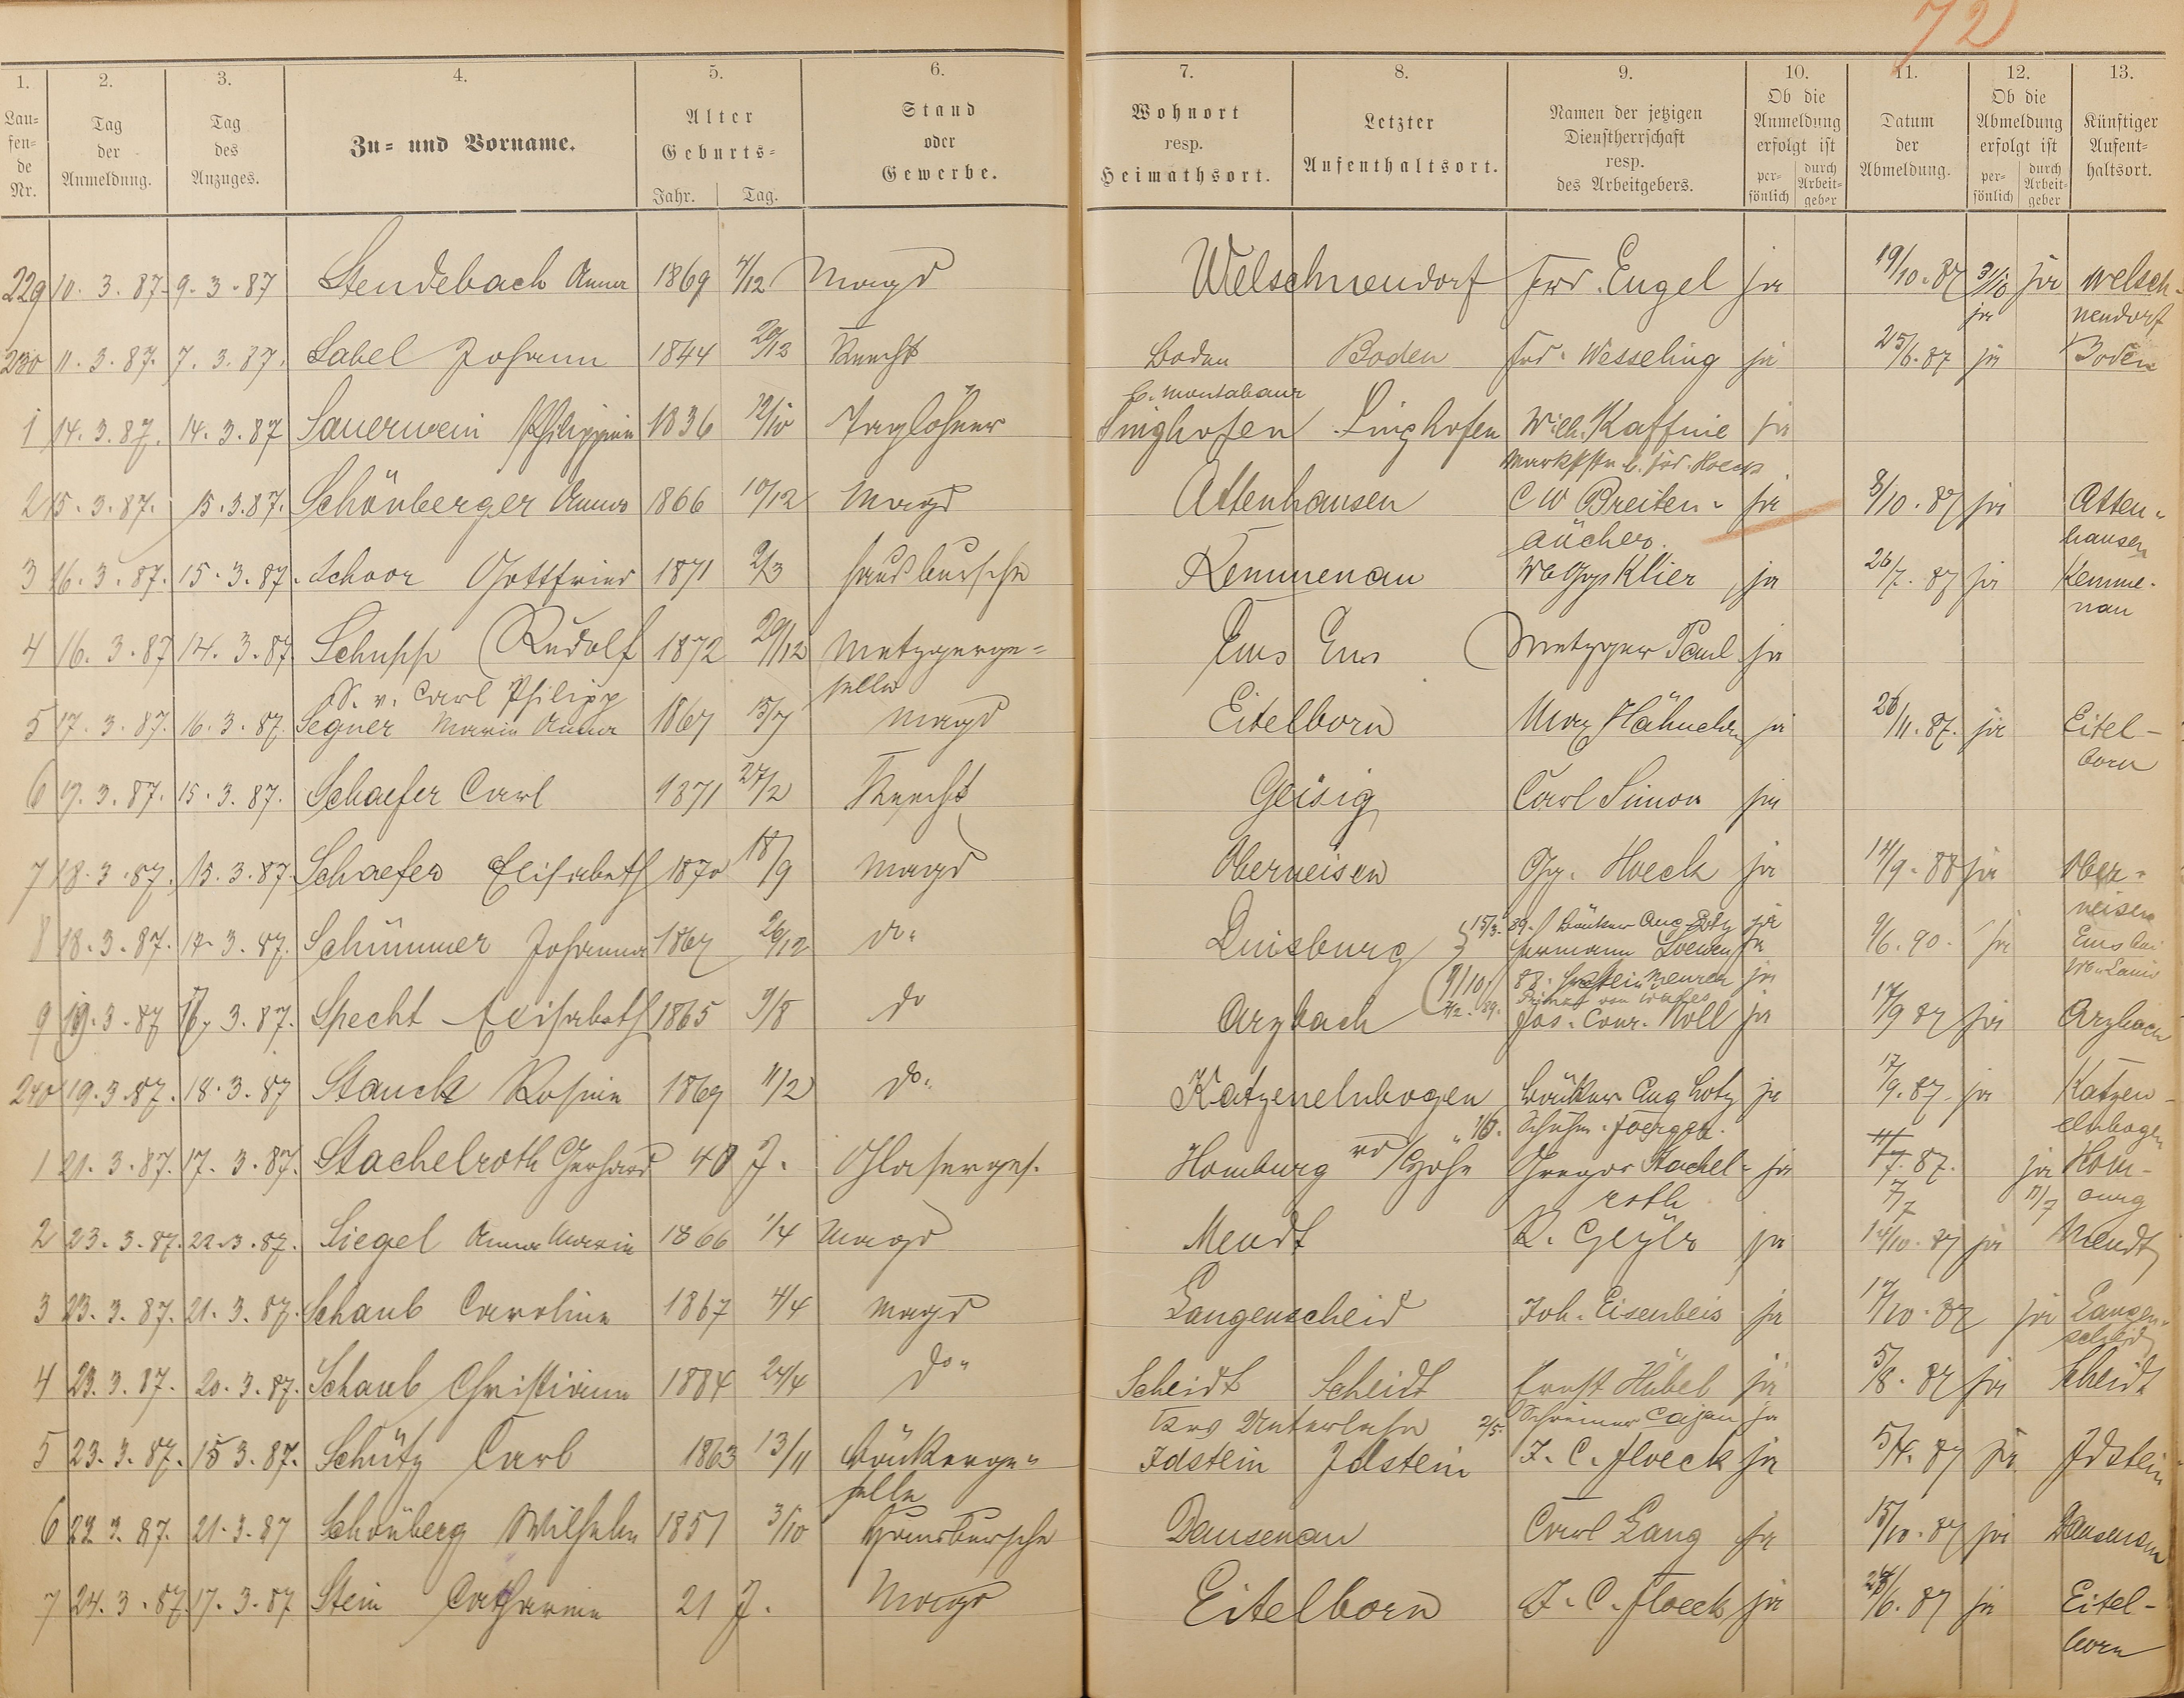 72
1. 2. 3. 4. 5. 6. 7. 8. 9. 10. 11. 12. 13.
Lau=
fen=
de
Nr.
Tag
der
Anmeldung.
Tag
des
Anzuges.
Zu= und Vorname.
Alter
Geburts=
Jahr. Tag.
Stand
oder
Gewerbe.
Wohnort
resp.
Heimathsort.
Letzter
Aufenthaltsort.
Namen der jetzigen
Dienstherrschaft
resp.
des Arbeitgebers.
Ob die
Anmeldung
erfolgt ist
per=
sönlich
durch
Arbeit=
geber
Datum
der
Abmeldung.
Ob die
Abmeldung
erfolgt ist
per=
sönlich
durch
Arbeit=
geber
Künftiger
Aufent=
haltsort.
229 10. 3. 87. 9. 3. 87 Stendebach Anna 1869 4/12 Magd Welschneudorf Frd. Engel ja 19/10. 87 31/10 ja Welsch-
ja neudorf
230 11. 3. 87. 7. 3. 87. Sabel Johann 1844 Knecht Boden Boden Frd. Wesseling ja 25/6. 87 ja Boden
b. Montabaur
1 14. 3. 87. 14. 3. 87 Sauerwein Philippine 1836 12/10 Taglöhner Singhofen Singhofen Wilh. Kaffine ja
Marktstr. b. Frd. Hoeck
2 15. 3. 87. 15. 3. 87. Schönberger Anna 1866 10/12 Magd Attenhausen C W Breiten- ja 8/10. 87 ja Atten-
hausen
3 16. 3. 87. 15. 3. 87. Schoor Gottfried 1871 2/3 Hausbursche Kemmenau Klier ja 26/7. 87 ja Kemme-
nau
4 16. 3. 87 14. 3. 87. Schupp Rudolf 1872 29/12 Metzgerge= Ems Ems Metzger Paul ja
S. v. Carl Philipp selle
5 17. 3. 87. 16. 3. 87. Segner Maria Anna 1867 15/7 Magd Eitelborn Max Hähnchen ja 26/11. 87. ja Eitel-
born
6 17. 3. 87. 15. 3. 87. Schaefer Carl 1871 27/2 Knecht Geisig Carl Simon ja
7 18. 3. 87. 15. 3. 87. Schaefer Elisabeth 1870 18/9 Magd Oberneisen Gg. Hoeck ja 14/9. 88 ja Ober-
neisen
15/3. 89. Bäcker Aug. Lotz ja
8 18. 3. 87. 17. 3. 87. Schümmer Johanna 1867 26/12 do. Duisburg Hermann Loewen ja 9/6. 90. ja Ems bei
9/10 88. ja
2/2. 89. Prinz von Wales
9 19. 3. 87 3. 87. Specht Elisabeth 1865 9/8 do Arzbach Jos. Conr. Noll ja 17/9 87 ja Arzbach
240 19. 3. 87. 18. 3. 87 Stauch Rosine 1869 11/2 do. Katzenelnbogen Bäcker Aug Lotz ja 17/9. 87 ja Katzen-
elnbogen
1 21. 3. 87. 17. 3. 87. Stachelroth Gerhard 40 J. Glaserges. Homburg vd Höhe Gregor Stachel- ja 87. ja Hom-
roth 7/7 11/7 burg
2 23. 3. 87. 22. 3. 87. Siegel Anna Maria 1866 1/4 Magd Meudt ja 14/10. 87 ja Meudt
3 23. 3. 87. 21. 3. 87. Schaub Caroline 1867 4/4 Magd Langenscheid Joh. Eisenbeis ja 17/10. 87 ja Langen-
scheid
4 23. 3. 87. 20. 3. 87. Schaub Christiane 1884 24/4 do. Scheidt Scheidt Ernst Hübel ja 5/8. 87 ja Scheidt
Krs Unterlahn 2/5. Schreiner Cajan ja
5 23. 3. 87. 15 3. 87. Schütz Carl 1863 13/11 Bäckerge- Idstein Idstein J. C. Floeck ja 5/4. 87 ja Idstein
selle
6 23. 3. 87. 21. 3. 87 Schönberg Wilhelm 1851 3/10 Hausbursche Dausenau Carl Lang ja 15/10. 87 ja Dausenau
7 24. 3. 87. 17. 3. 87 Stein Catharine 21 J. Magd Eitelborn J. C. Floeck ja 24/6. 87 ja Eitel-
born